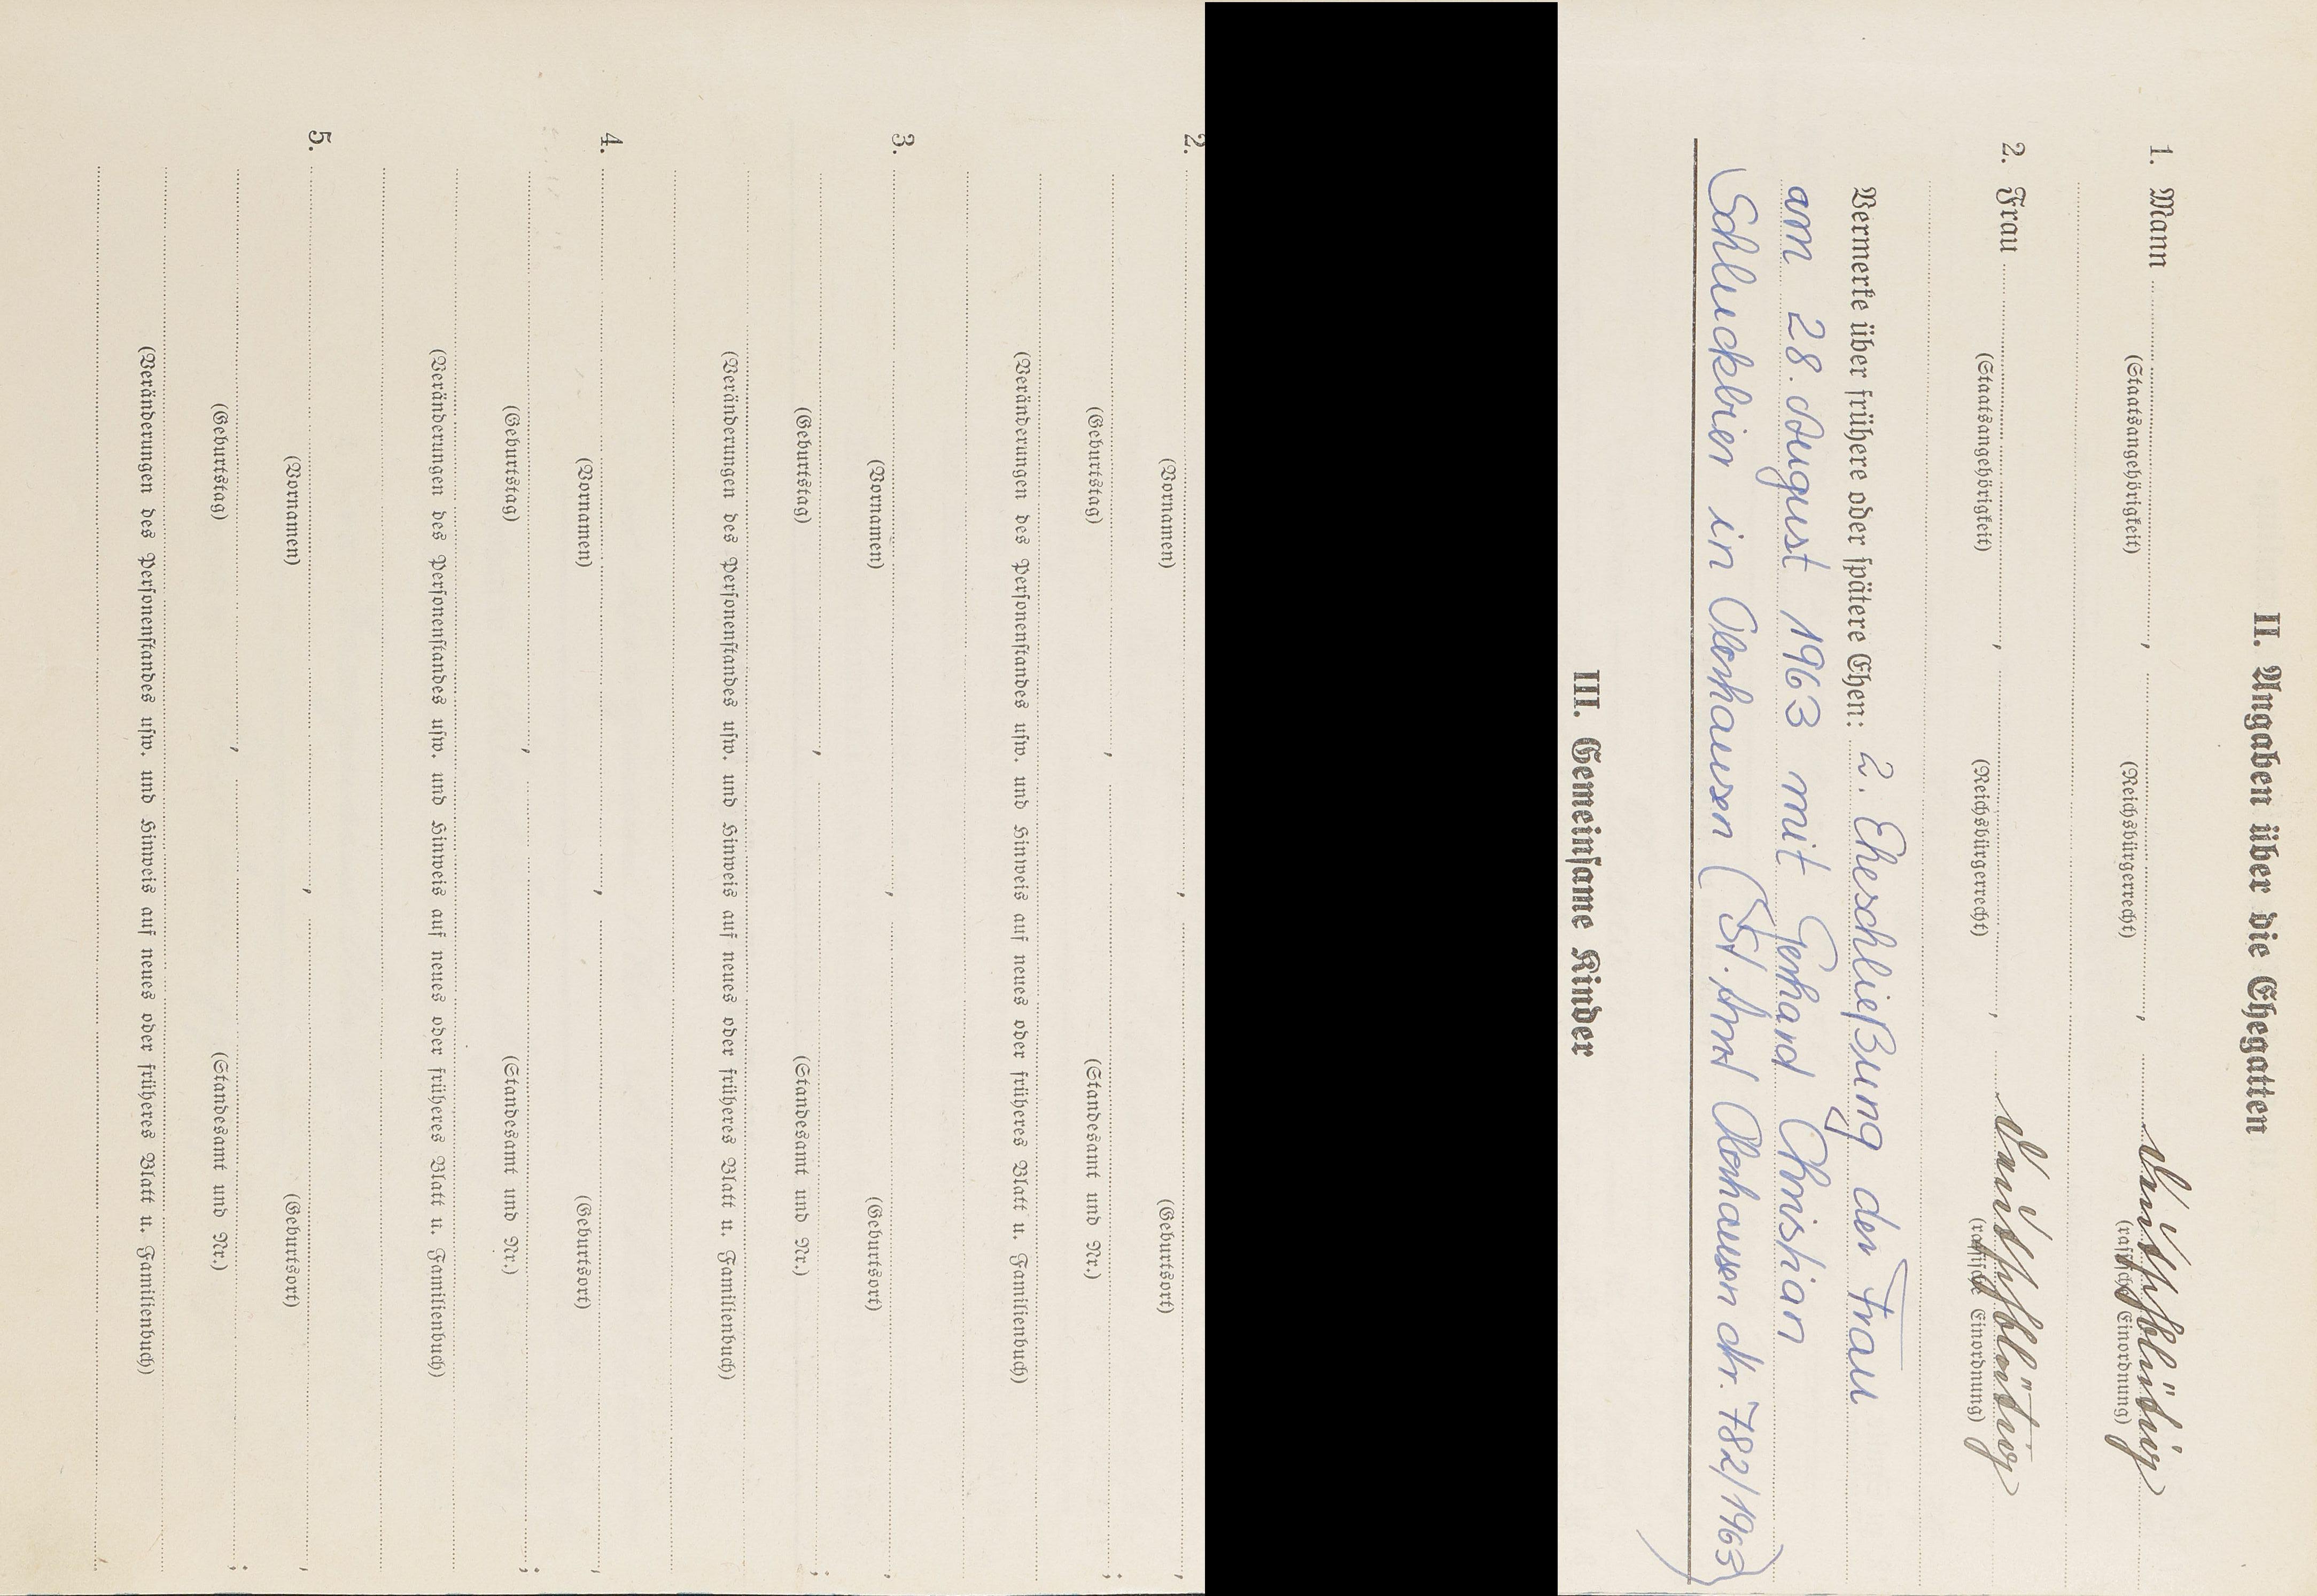 II. Angaben über die Ehegatten
1. Mann , , Deutschblütig
(Staatsangehörigkeit) (Reichsbürgerrecht) (rassische Einordnung)
2. Frau , , Deutschblütig
(Staatsangehörigkeit) (Reichsbürgerrecht) (rassische Einordnung)
Vermerke über frühere oder spätere Ehen: 2. Eheschließung der Frau
am 28. August 1963 mit Gerhard Christian
Schluckbier in Oberhausen (St. Amt Oberhausen Nr. 782/1963)
III. Gemeinsame Kinder
2. , ,
(Vornamen) (Geburtsort)
, ;
(Geburtstag) (Standesamt und Nr.)
(Veränderungen des Personenstandes usw. und Hinweis auf neues oder früheres Blatt u. Familienbuch)
3. , ,
(Vornamen) (Geburtsort)
, ;
(Geburtstag) (Standesamt und Nr.)
(Veränderungen des Personenstandes usw. und Hinweis auf neues oder früheres Blatt u. Familienbuch)
4. , ,
(Vornamen) (Geburtsort)
, ;
(Geburtstag) (Standesamt und Nr.)
(Veränderungen des Personenstandes usw. und Hinweis auf neues oder früheres Blatt u. Familienbuch)
5. , ,
(Vornamen) (Geburtsort)
, ;
(Geburtstag) (Standesamt und Nr.)
(Veränderungen des Personenstandes usw. und Hinweis auf neues oder früheres Blatt u. Familienbuch)